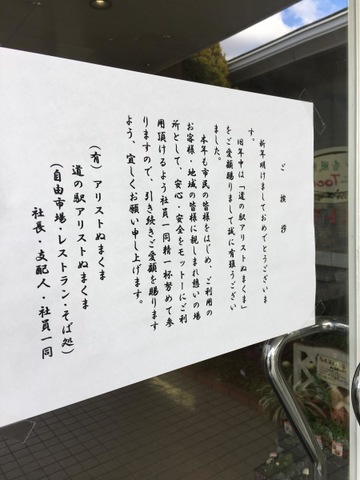 ご挨拶
新年明けましておめでとうございま
す。
旧年中は「道の駅アリストぬまくま」
をご愛顧賜りまして誠に有難うござい
ました。
本年も市民の皆様をはじめ、ご利用の
お客様・地域の皆様に親しまれ憩いの場
所として、安心・安全をモットーにご利
用頂けるよう社員一同精一杯努めて参
りますので、引き続きご愛顧を賜ります
よう、宜しくお願い申し上げます。
(有)アリストぬまくま
道の駅アリストぬまくま
(自由市場・レストラン・そば処)
社長・支配人・社員一同